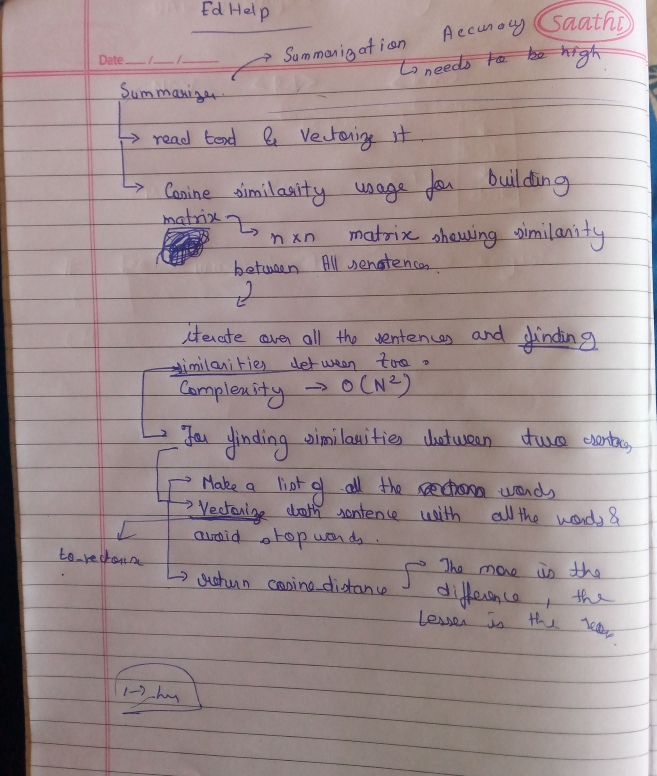 Ed Help
Saathi
Date __/__/__
Summarization Accuracy
↳ needs to be high
Summarizer
→ read text & Vectorize it
→ Cosine similarity usage for building
matrix
↳ n x n matrix showing similarity
between All sentences.
iterate over all the sentences and finding
similarities between two.
Complexity → O(N²)
→ For finding similarities between two
→ Make a list of all the words
→ Vectorize both sentence with all the words &
avoid stop words.
→ return cosine_distance
→ The more is the
difference, the
lesser is the
1 →